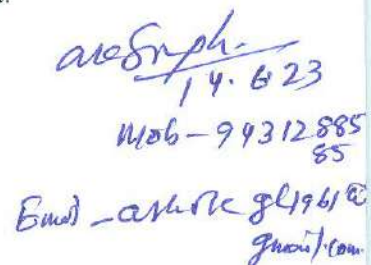 14.6.23
Mob - 94312885
85
Email - ashokegl1961@
gmail.com